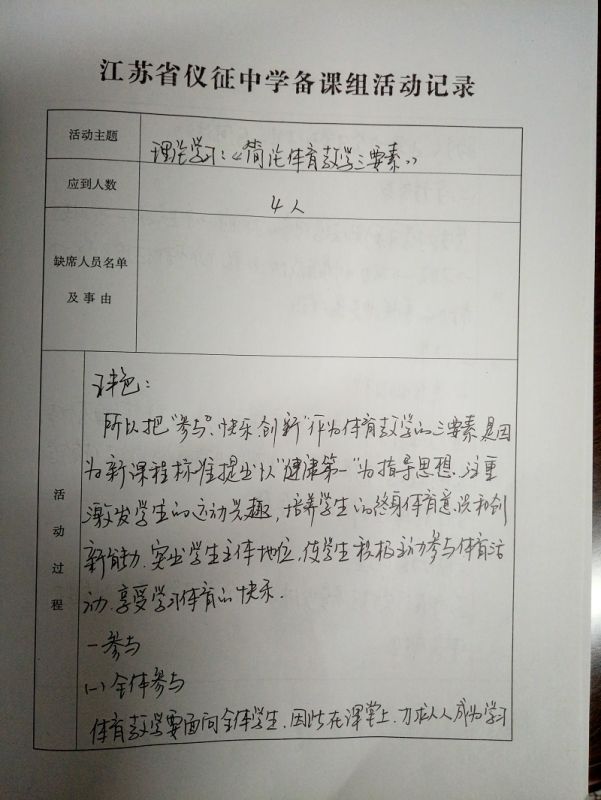 江苏省仪征中学备课组活动记录
活动主题
理论学习：《简论体育教学三要素》
应到人数
4人
缺席人员名单
及事由
活动过程
所以把“参与”、快乐、创新”作为体育教学的三要素是因
为新课程标准提出以“健康第一”为指导思想.注重
激发学生的运动兴趣，培养学生的终身体育意识和创
新能力.突出学生主体地位，使学生积极主动参与体育活
动.享受学习体育的快乐.
一参与
(一)全体参与
体育教学要面向全体学生.因此在课堂上.力求人人成为学习